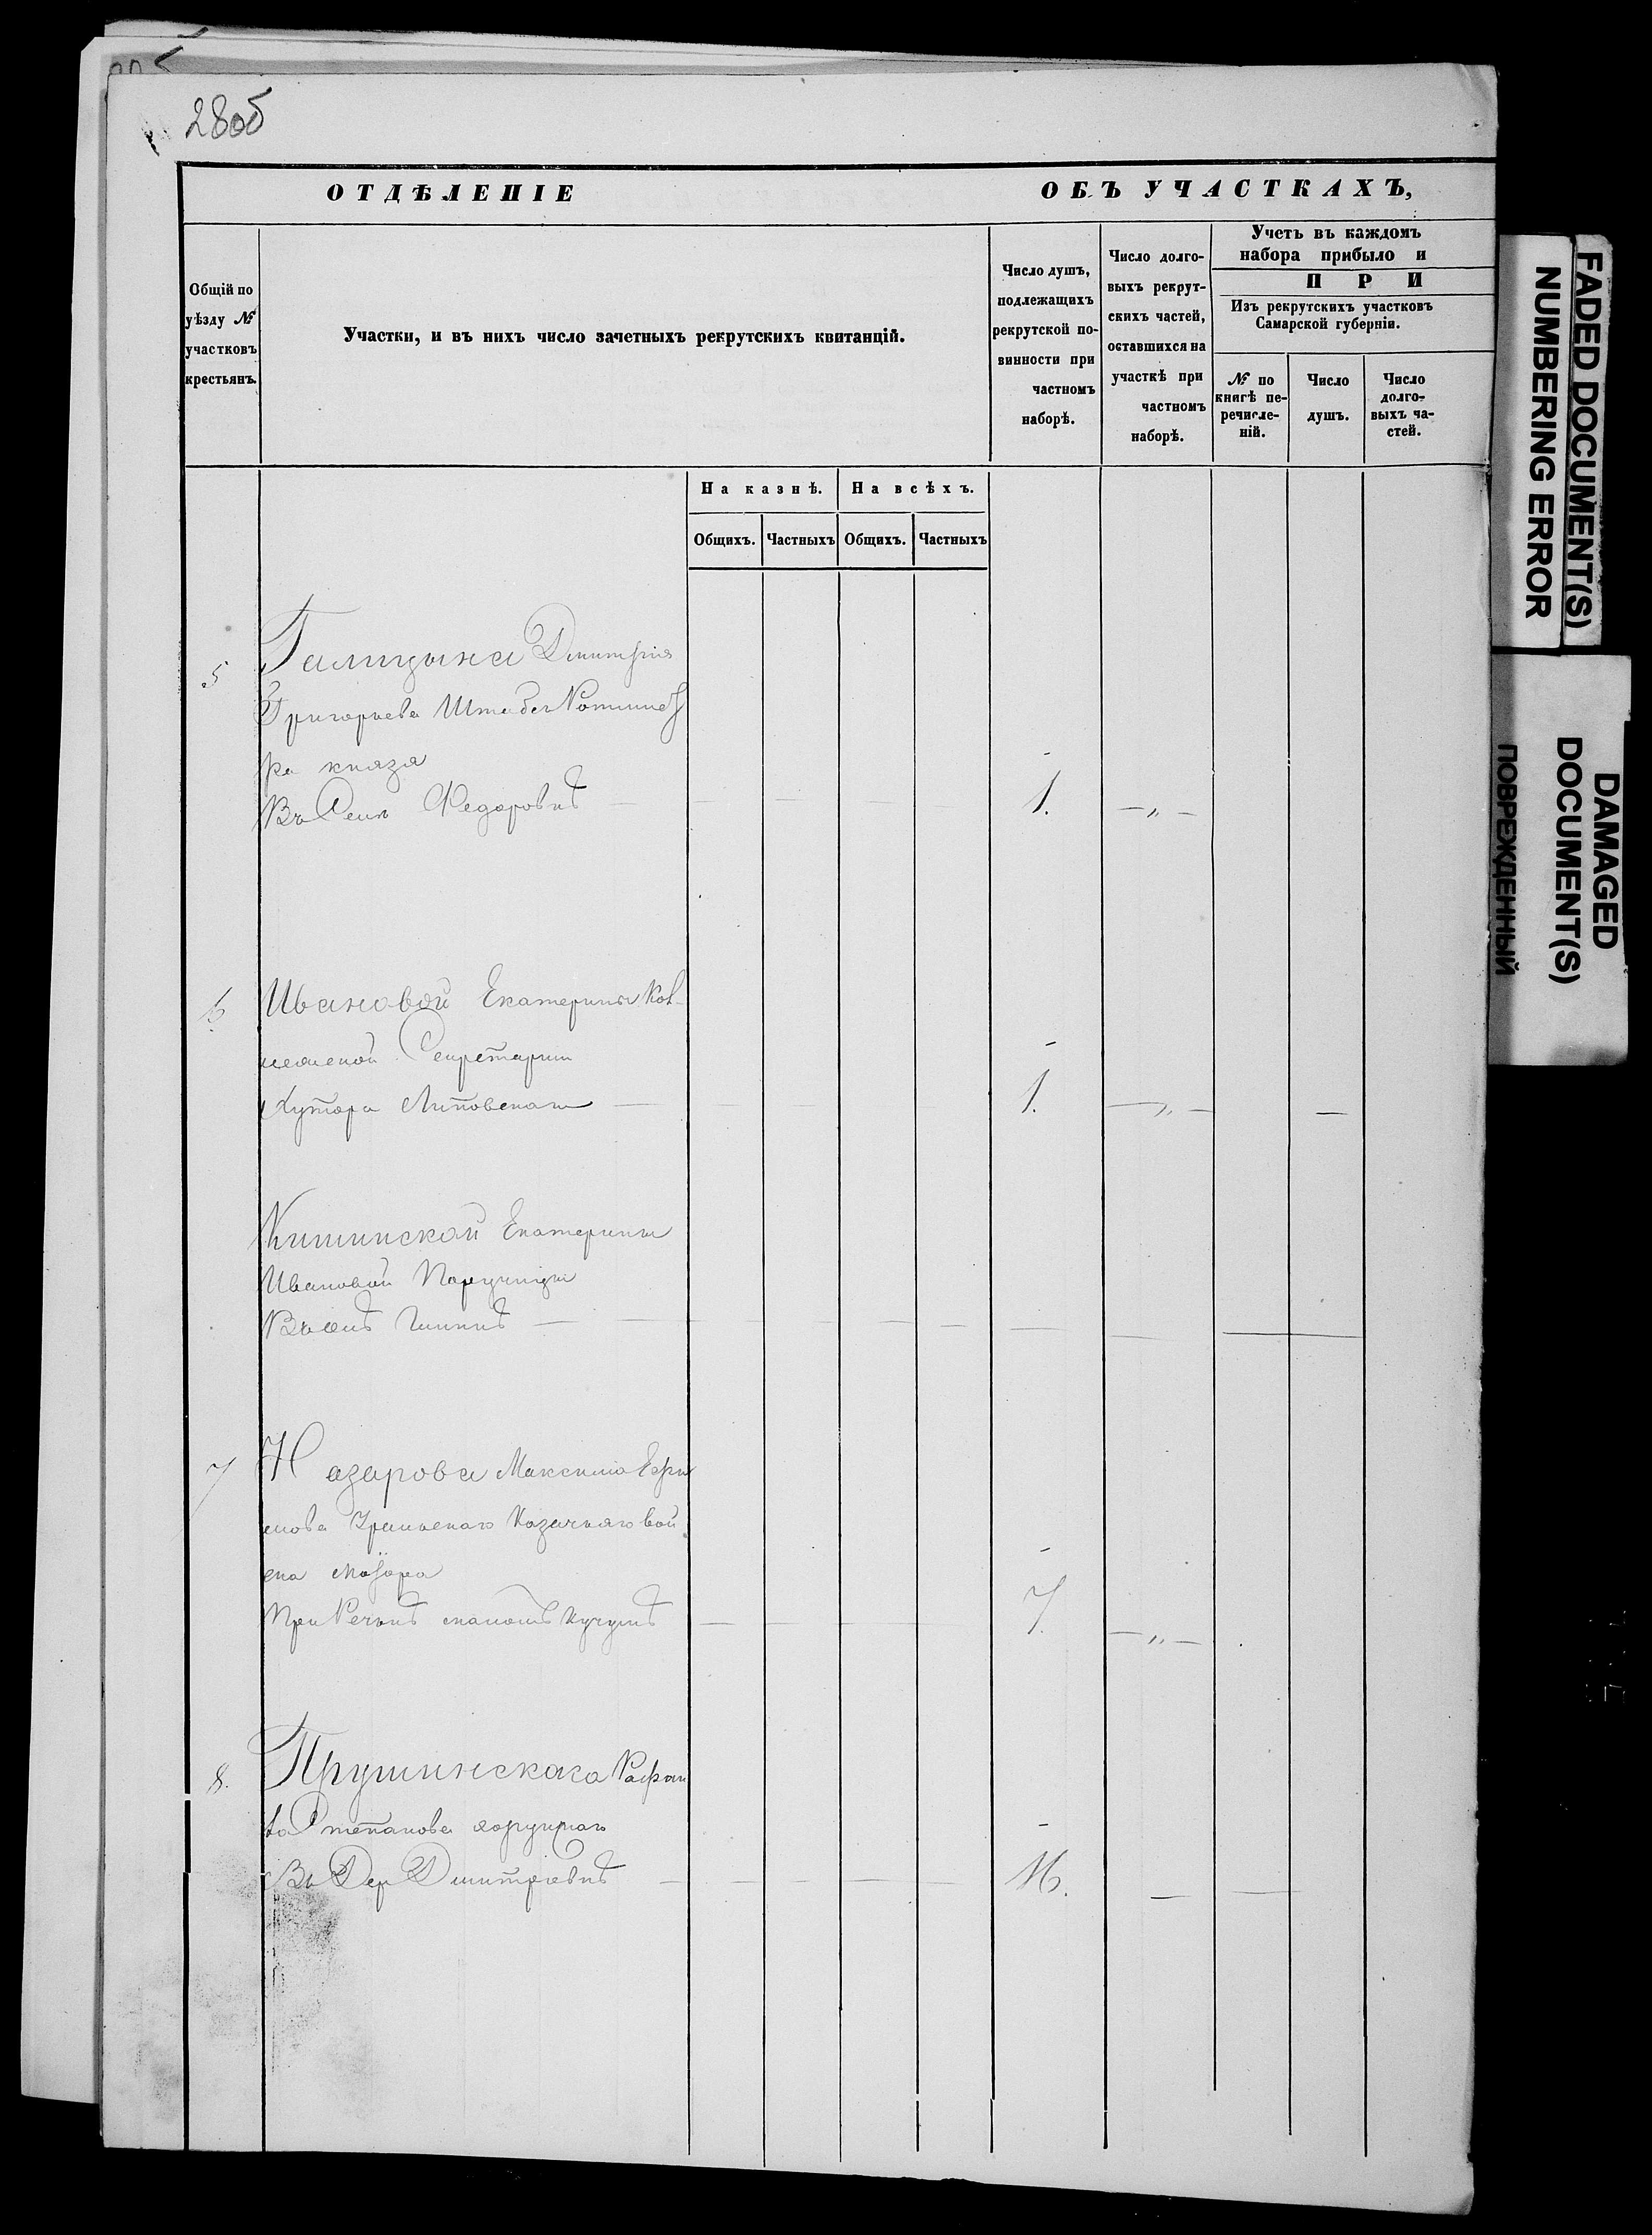 28об
ОТДѢЛЕНІЕ ОБЪ УЧАСТКАХЪ,
Общій по уѣзду № участковъ крестьянъ.
Участки, и въ нихъ число зачетныхъ рекрутскихъ квитанцій.
Число душъ, подлежащихъ рекрутской повинности при частномъ наборѣ.
Число долговыхъ рекрутскихъ частей, оставшихся на участкѣ при частномъ наборѣ.
Учетъ въ каждомъ
набора прибыло и
ПРИ
Изъ рекрутскихъ участковъ
Самарской губерніи.
№ по книгѣ перечисленій.
Число душъ.
Число долговыхъ частей.
На казнѣ. На всѣхъ.
Общихъ. Частныхъ Общихъ. Частныхъ
5 Галицына Дмитрія
Григорьева Штабсъ Ротмист
ра князя
Въ Селѣ Федоровкѣ — — — — 1. — „ —
6 Ивановой Екатерины Кол-
лежской Секретарши
Хутора Липовскаго — — — 1. — „ — —
Кишинской Екатерины
Ивановой Поручицы
Въ селѣ
7 Назарова Максима Ефи
мова Уральскаго Казачьяго вой
ска маіора
При Речкѣ малой Кучумъ — — 7. — „ —
8. Прушинскаго
Степанова хорунжаго
Въ Дер Дмитріевкѣ — — — — — 16. — —
FADED DOCUMENT(S)
NUMBERING ERROR
DAMAGED
DOCUMENT(S)
ПОВРЕЖДЕННЫЙ